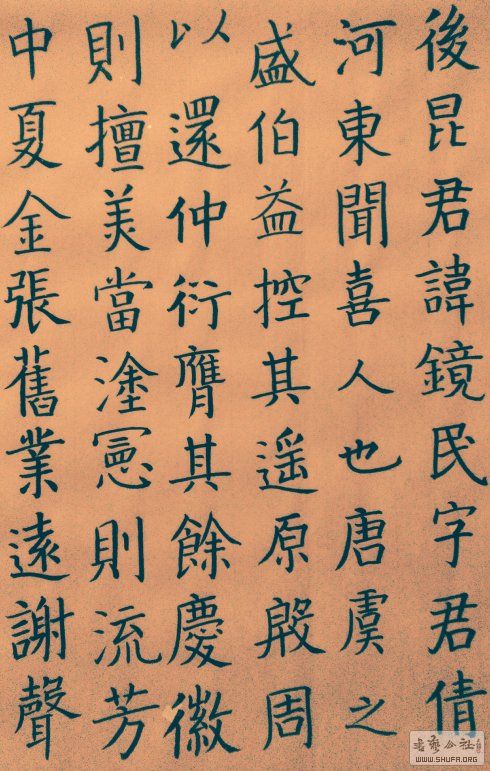 後昆君諱鏡民字君倩
河東聞喜人也唐虞之
盛伯益控其遥原殷周
以還仲衍膺其餘慶徽
則擅美當塗憲則流芳
中夏金張舊業遠謝聲
WWW.SHUFA.ORG